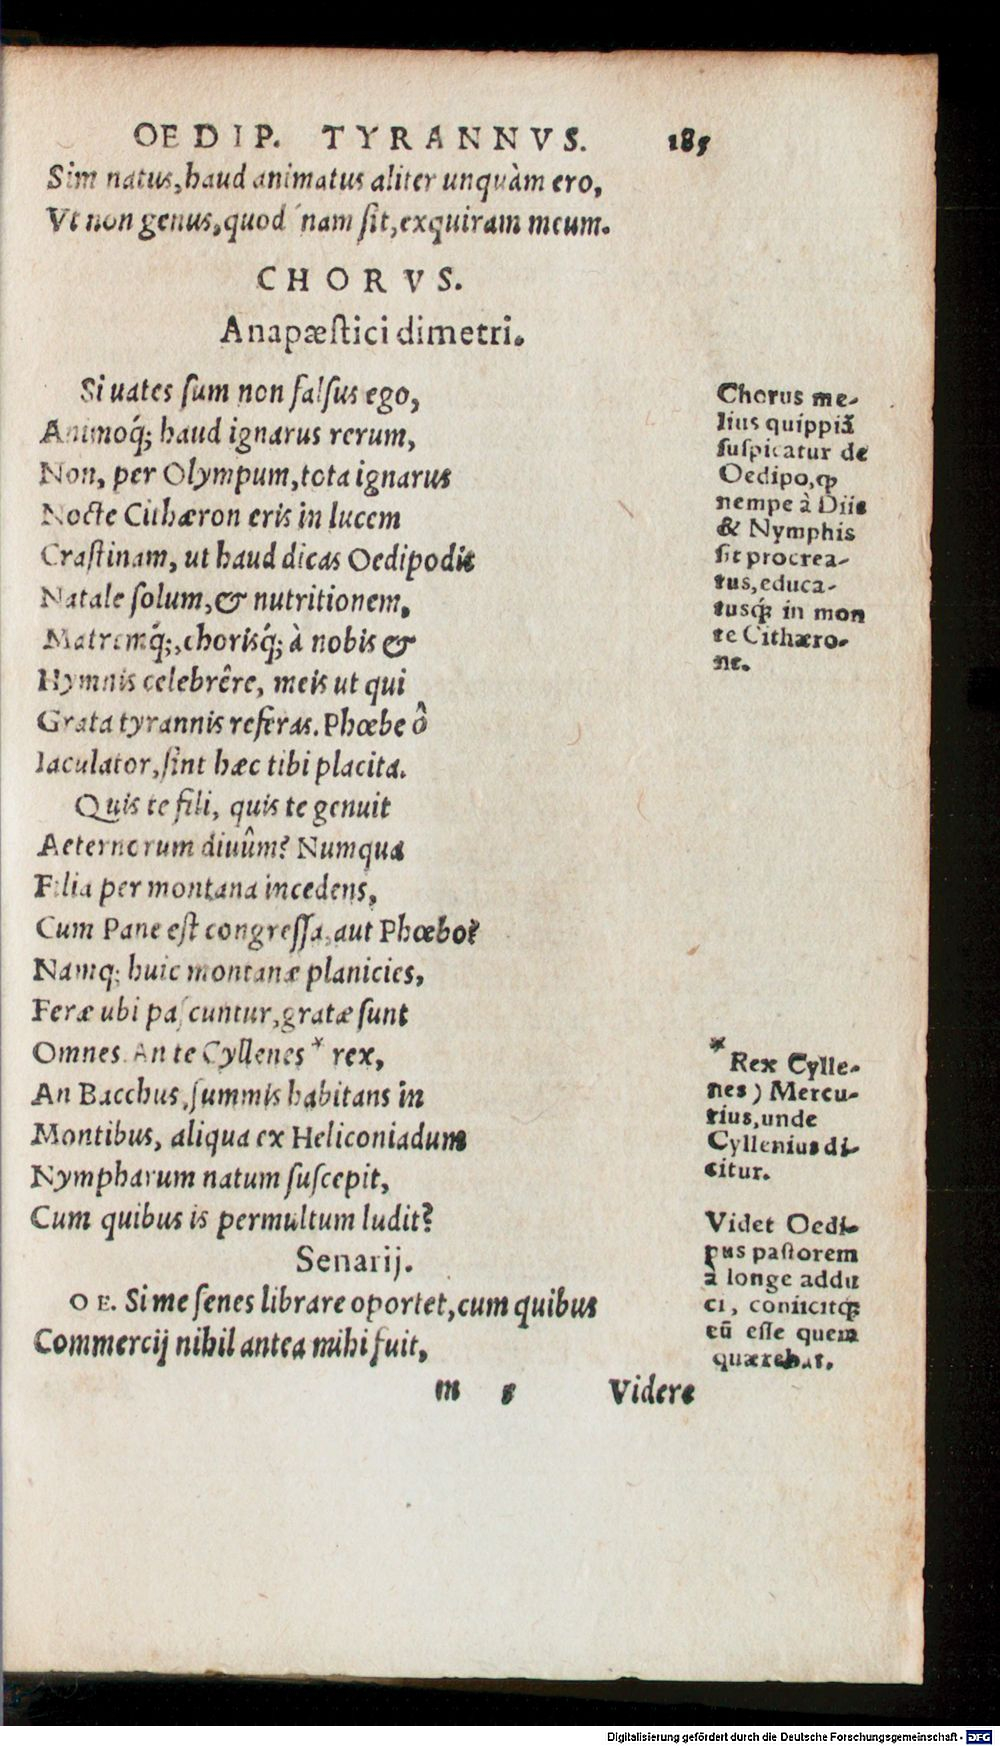 OEDIP. TYRANNVS. 185
Sim natus, haud animatus aliter unquàm ero,
Vt non genus, quod nam sit, exquiram meum.
CHORVS.
Anapæstici dimetri.
Si uates sum non falsus ego,
Animoq́; haud ignarus rerum,
Non, per Olympum, tota ignarus
Nocte Cithæron eris in lucem
Crastinam, ut haud dicas Oedipodis
Natale solum, & nutritionem,
Matremq́;, chorisq́; à nobis &
Hymnis celebrêre, meis ut qui
Grata tyrannis referas. Phœbe ô
Iaculator, sint hæc tibi placita.
Quis te fili, quis te genuit
Aeternorum diuûm? Numqua
Filia per montana incedens,
Cum Pane est congressa, aut Phœbo?
Namq; huic montanæ planicies,
Feræ ubi pascuntur, gratæ sunt
Omnes. An te Cyllenes * rex,
An Bacchus, summis habitans in
Montibus, aliqua ex Heliconiadum
Nympharum natum suscepit,
Cum quibus is permultum ludit?
Senarij.
OE. Si me senes librare oportet, cum quibus
Commercij nihil antea mihi fuit,
m 5 Videre
Chorus me-
lius quippiā
suspicatur de
Oedipo, ꝙ
nempe à Diis
& Nymphis
sit procrea-
tus, educa-
tusq́; in mon
te Cithæro-
ne.
* Rex Cylle-
nes) Mercu-
rius, unde
Cyllenius di-
citur.
Videt Oedi-
pus pastorem
à longe addu
ci, coniicitq́;
eũ esse quem
quærebat.
Digitalisierung gefördert durch die Deutsche Forschungsgemeinschaft - DFG